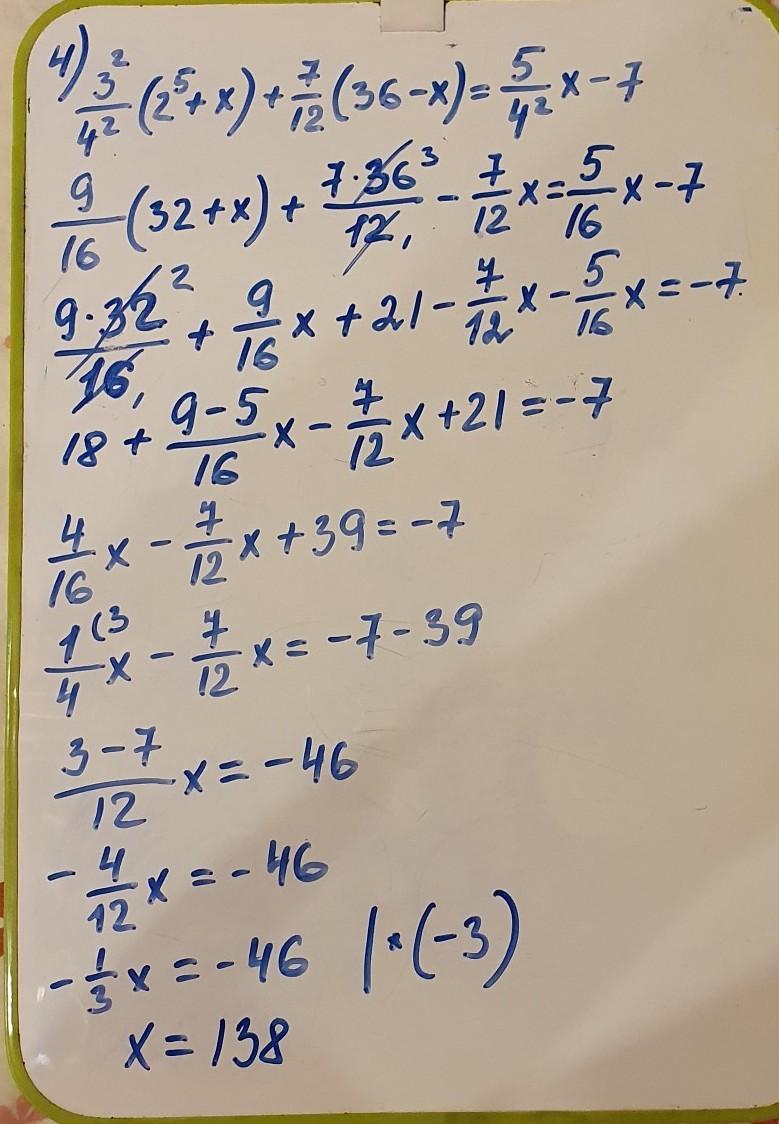 4) 3²/4² (2⁵+x) + 7/12 (36-x) = 5/4² x - 7
9/16 (32+x) + 7·36³/12₁ - 7/12 x = 5/16 x - 7
9·32²/16₁ + 9/16 x + 21 - 7/12 x - 5/16 x = -7
18 + 9-5/16 x - 7/12 x + 21 = -7
4/16 x - 7/12 x + 39 = -7
1(3/4 x - 7/12 x = -7 - 39
3-7/12 x = -46
- 4/12 x = -46
- 1/3 x = -46 | · (-3)
x = 138